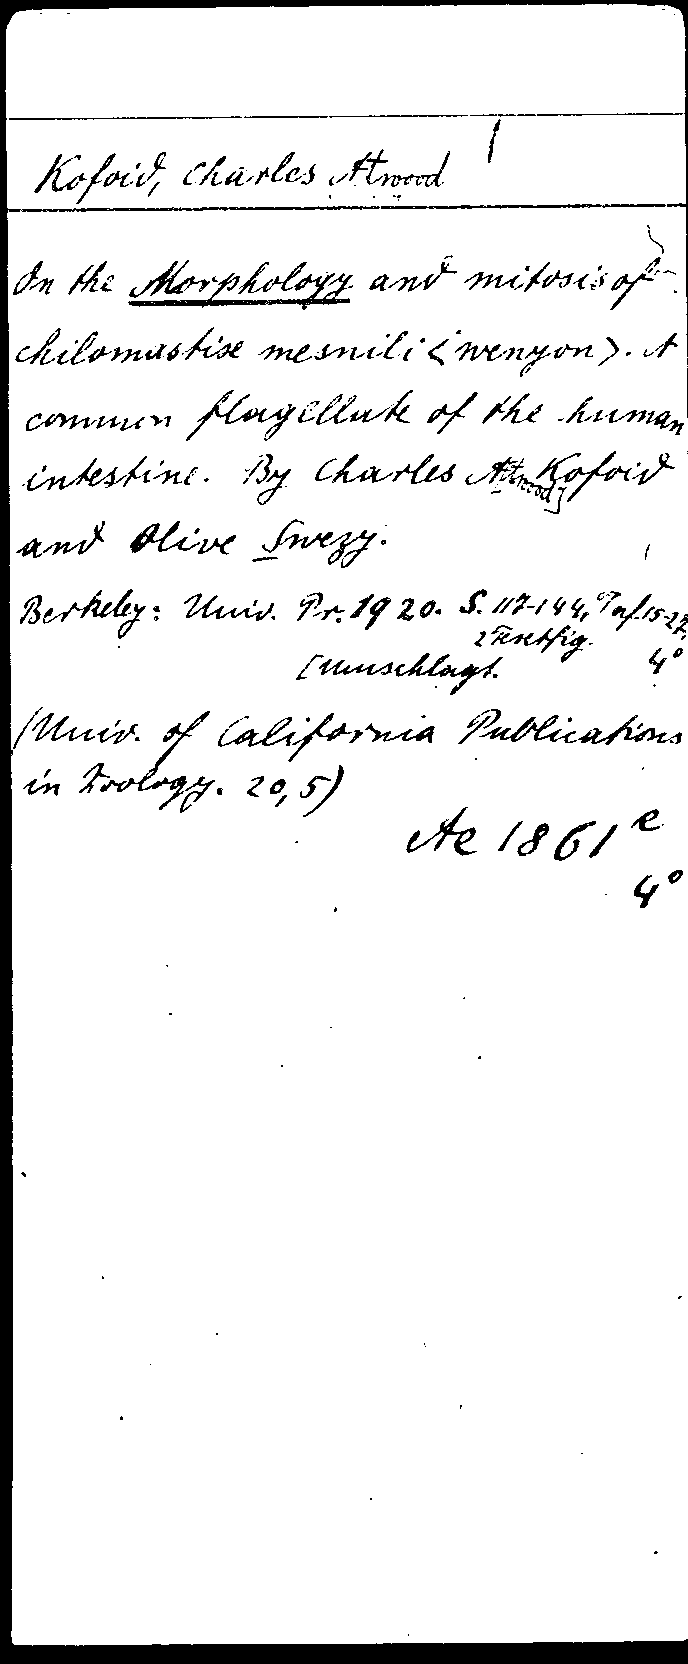 Kofoid, Charles Atwood
On the Morphology and mitosis of
chilomastise mesnili <wenyon>. A
common flagellate of the human
intestine. By Charles A[twood] Kofoid
and Olive Swezy.
Berkeley: Univ. Pr. 1920. S. 117-144, Taf. 15-27,
2 Textfig. 4°
[Umschlagt.
(Univ. of California Publications
in Zoology. 20,5)
Ae 1861 e
4°